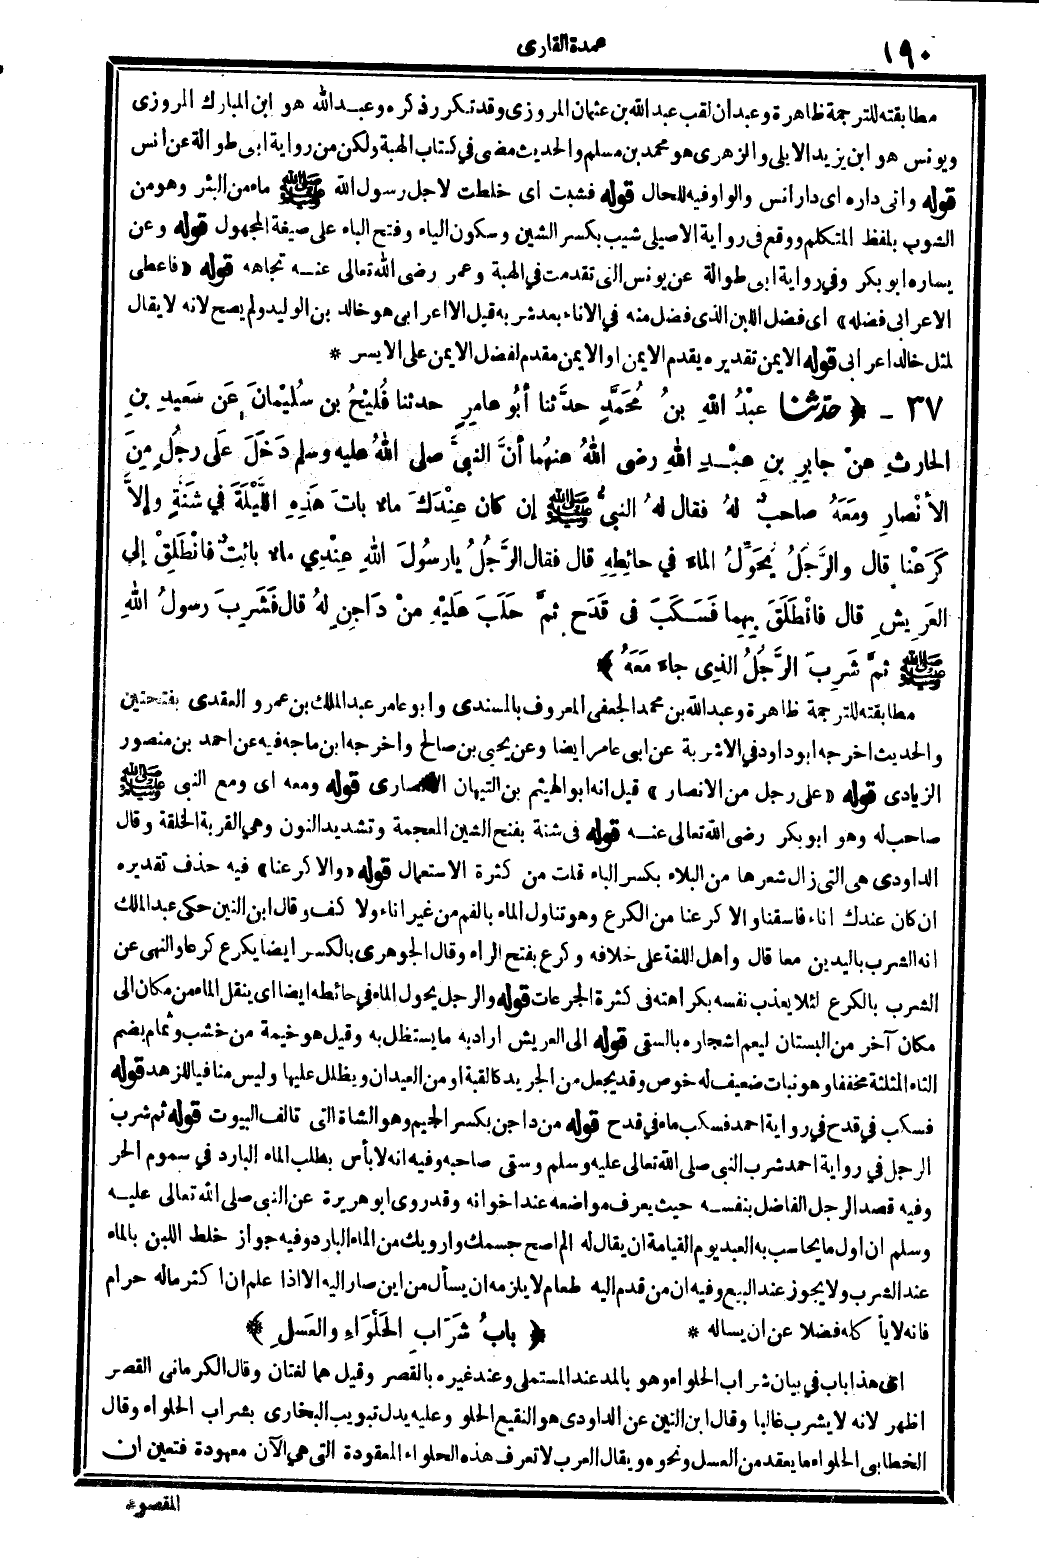 ١٩٠
عمدة القارى
مطابقته للترجمة ظاهرة وعبدان لقب عبد الله بن عثمان المروزى وقد تكرر ذكره وعبد الله هو ابن المبارك المروزى
ويونس هو ابن يزيد الايلى والزهرى هو محمد بن مسلم والحديث مضى فى كتاب الهبة ولكن من رواية ابى طوالة عن انس
قوله واتى داره اى دار انس والواو فيه للحال قوله فشبت اى خلطت لاجل رسول الله ﷺ ماء من البئر وهو من
الشوب بلفظ المتكلم ووقع فى رواية الاصيلى شيب بكسر الشين وسكون الياء وفتح الباء على صيغة المجهول قوله وعن
يساره ابو بكر وفى رواية ابى طوالة عن يونس التى تقدمت فى الهبة وعمر رضى الله تعالى عنه تجاهه قوله «فاعطى
الاعرابى فضله» اى فضل اللبن الذى فضل منه فى الاناء بعد شربه قيل الاعرابى هو خالد بن الوليد ولم يصح لانه لا يقال
لمثل خالد اعرابى قوله الايمن تقديره يقدم الايمن او الايمن مقدم لفضل الايمن على الايسر *
٣٧ - ﴿ حدثنا عبْدُ اللهِ بنُ مُحَمَّدٍ حدَّثنا أبُو عامرٍ حدثنا فُلَيْحُ بن سُلَيْمانَ عَن سَعِيدِ بنِ
الحارِثِ عنْ جابِرِ بنِ عبْدِ اللهِ رضى اللهُ عنهُما أنَّ النبىَّ صلى اللهُ عليه وسلم دَخَلَ عَلى رجُلٍ مِنَ
الأنْصارِ ومَعَهُ صاحبٌ لهُ فقال لهُ النبىُّ ﷺ إن كان عِنْدَكَ ماء باتَ هَذِهِ اللَّيْلَةَ في شَنَّةٍ وإلاَّ
كَرَعْنا قال والرَّجُلُ يُحَوِّلُ الماءَ في حائِطِهِ قال فقال الرَّجُلُ يا رسُولَ اللهِ عِنْدِي ماء بائتٌ فانْطَلِقْ إلى
العَرِيشِ قال فانْطَلَقَ بِهِما فَسَكَبَ فى قَدَحٍ ثمَّ حَلَبَ عَلَيْهِ مِنْ دَاجِنٍ لهُ قال فَشَرِبَ رسولُ اللهِ
ﷺ ثمَّ شَرِبَ الرَّجُلُ الذِى جاء مَعَهُ ﴾
مطابقته للترجمة ظاهرة وعبد الله بن محمد الجعفى المعروف بالمسندى وابو عامر عبد الملك بن عمرو العقدى بفتحتين
والحديث اخرجه ابو داود فى الاشربة عن ابى عامر ايضا وعن يحيى بن صالح واخرجه ابن ماجه فيه عن احمد بن منصور
الزيادى قوله «على رجل من الانصار» قيل انه ابو الهيثم بن التيهان الانصارى قوله ومعه اى ومع النبى ﷺ
صاحب له وهو ابو بكر رضى الله تعالى عنه قوله فى شنة بفتح الشين المعجمة وتشديد النون وهى القربة الخلقة وقال
الداودى هى التى زال شعرها من البلاء بكسر الباء قلت من كثرة الاستعمال قوله «والا كرعنا» فيه حذف تقديره
ان كان عندك اناء فاسقنا والا كرعنا من الكرع وهو تناول الماء بالفم من غير اناء ولا كف وقال ابن التين حكى عبد الملك
انه الشرب باليدين معا قال واهل اللغة على خلافه وكرع بفتح الراء وقال الجوهرى بالكسر ايضا يكرع كرعا والنهى عن
الشعرب بالكرع لئلا يعذب نفسه بكراهته فى كثرة الجرعات قوله والرجل يحول الماء في حائطه ايضا اى ينقل الماء من مكان الى
مكان آخر من البستان ليعم اشجاره بالسقى قوله الى العريش اراد به ما يستظل به وقيل هو خيمة من خشب وثمام بضم
الثاء المثلثة مخففا وهو نبات ضعيف له خوص وقد يجعل من الجريد كالقبة او من العيدان ويظلل عليها وليس منافيا للزهد قوله
فسكب فى قدح فى رواية احمد فسكب ماء فى قدح قوله من داجن بكسر الجيم وهو الشاة التى تالف البيوت قوله ثم شرب
الرجل فى رواية احمد شرب النبى صلى الله تعالى عليه وسلم وسقى صاحبه وفيه انه لا بأس بطلب الماء البارد فى سموم الحر
وفيه قصد الرجل الفاضل بنفسه حيث يعرف مواضعه عند اخوانه وقد روى ابو هريرة عن النبى صلى الله تعالى عليه
وسلم ان اول ما يحاسب به العبد يوم القيامة ان يقال له الم اصح جسمك وارويك من الماء البارد وفيه جواز خلط اللبن بالماء
عند الشرب ولا يجوز عند البيع وفيه ان من قدم اليه طعام لا يلزمه ان يسأل من اين صار اليه الا اذا علم ان اكثر ماله حرام
فانه لا يأكله فضلا عن ان يساله *
﴿ بابُ شَرَابِ الحَلْوَاءِ والعَسلِ ﴾
اى هذا باب فى بيان شراب الحلواء وهو بالمد عند المستملى وعند غيره بالقصر وقيل هما لغتان وقال الكرمانى القصر
اظهر لانه لا يشرب غالبا وقال ابن التين عن الداودى هو النقيع الحلو وعليه يدل تبويب البخارى بشراب الحلواء وقال
الخطابى الحلواء ما يعقد من العسل ونحوه ويقال العرب لا تعرف هذه الحلواء المعقودة التى هى الآن معهودة فتعين ان
المقصود